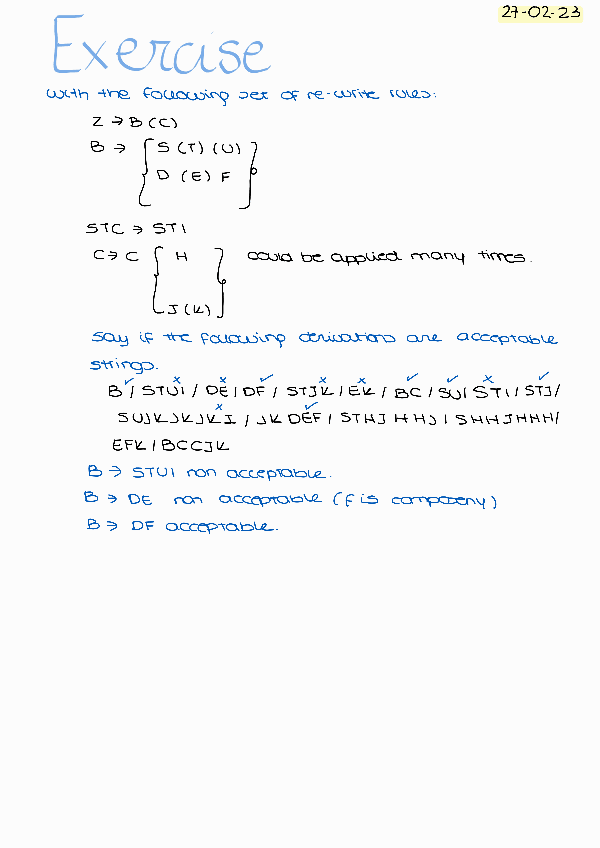 27-02-23
Exercise
with the following set of re-write rules:
Z → B (C)
B → { S (T) (U)
D (E) F }
STC → STI
C → C { H
J (K) } could be applied many times.
Say if the following derivations are acceptable
strings.
B ✓ / STUI x / DE x / DF ✓ / STJK x / EK x / BC ✓ / SU ✓ / STI x / STJ ✓ /
SUJKJKJKI x / JK DEF ✓ / STHJ HHJ / SHHJHHH /
EFK / BCCJK
B → STUI non acceptable.
B → DE non acceptable (F is compulsory)
B → DF acceptable.